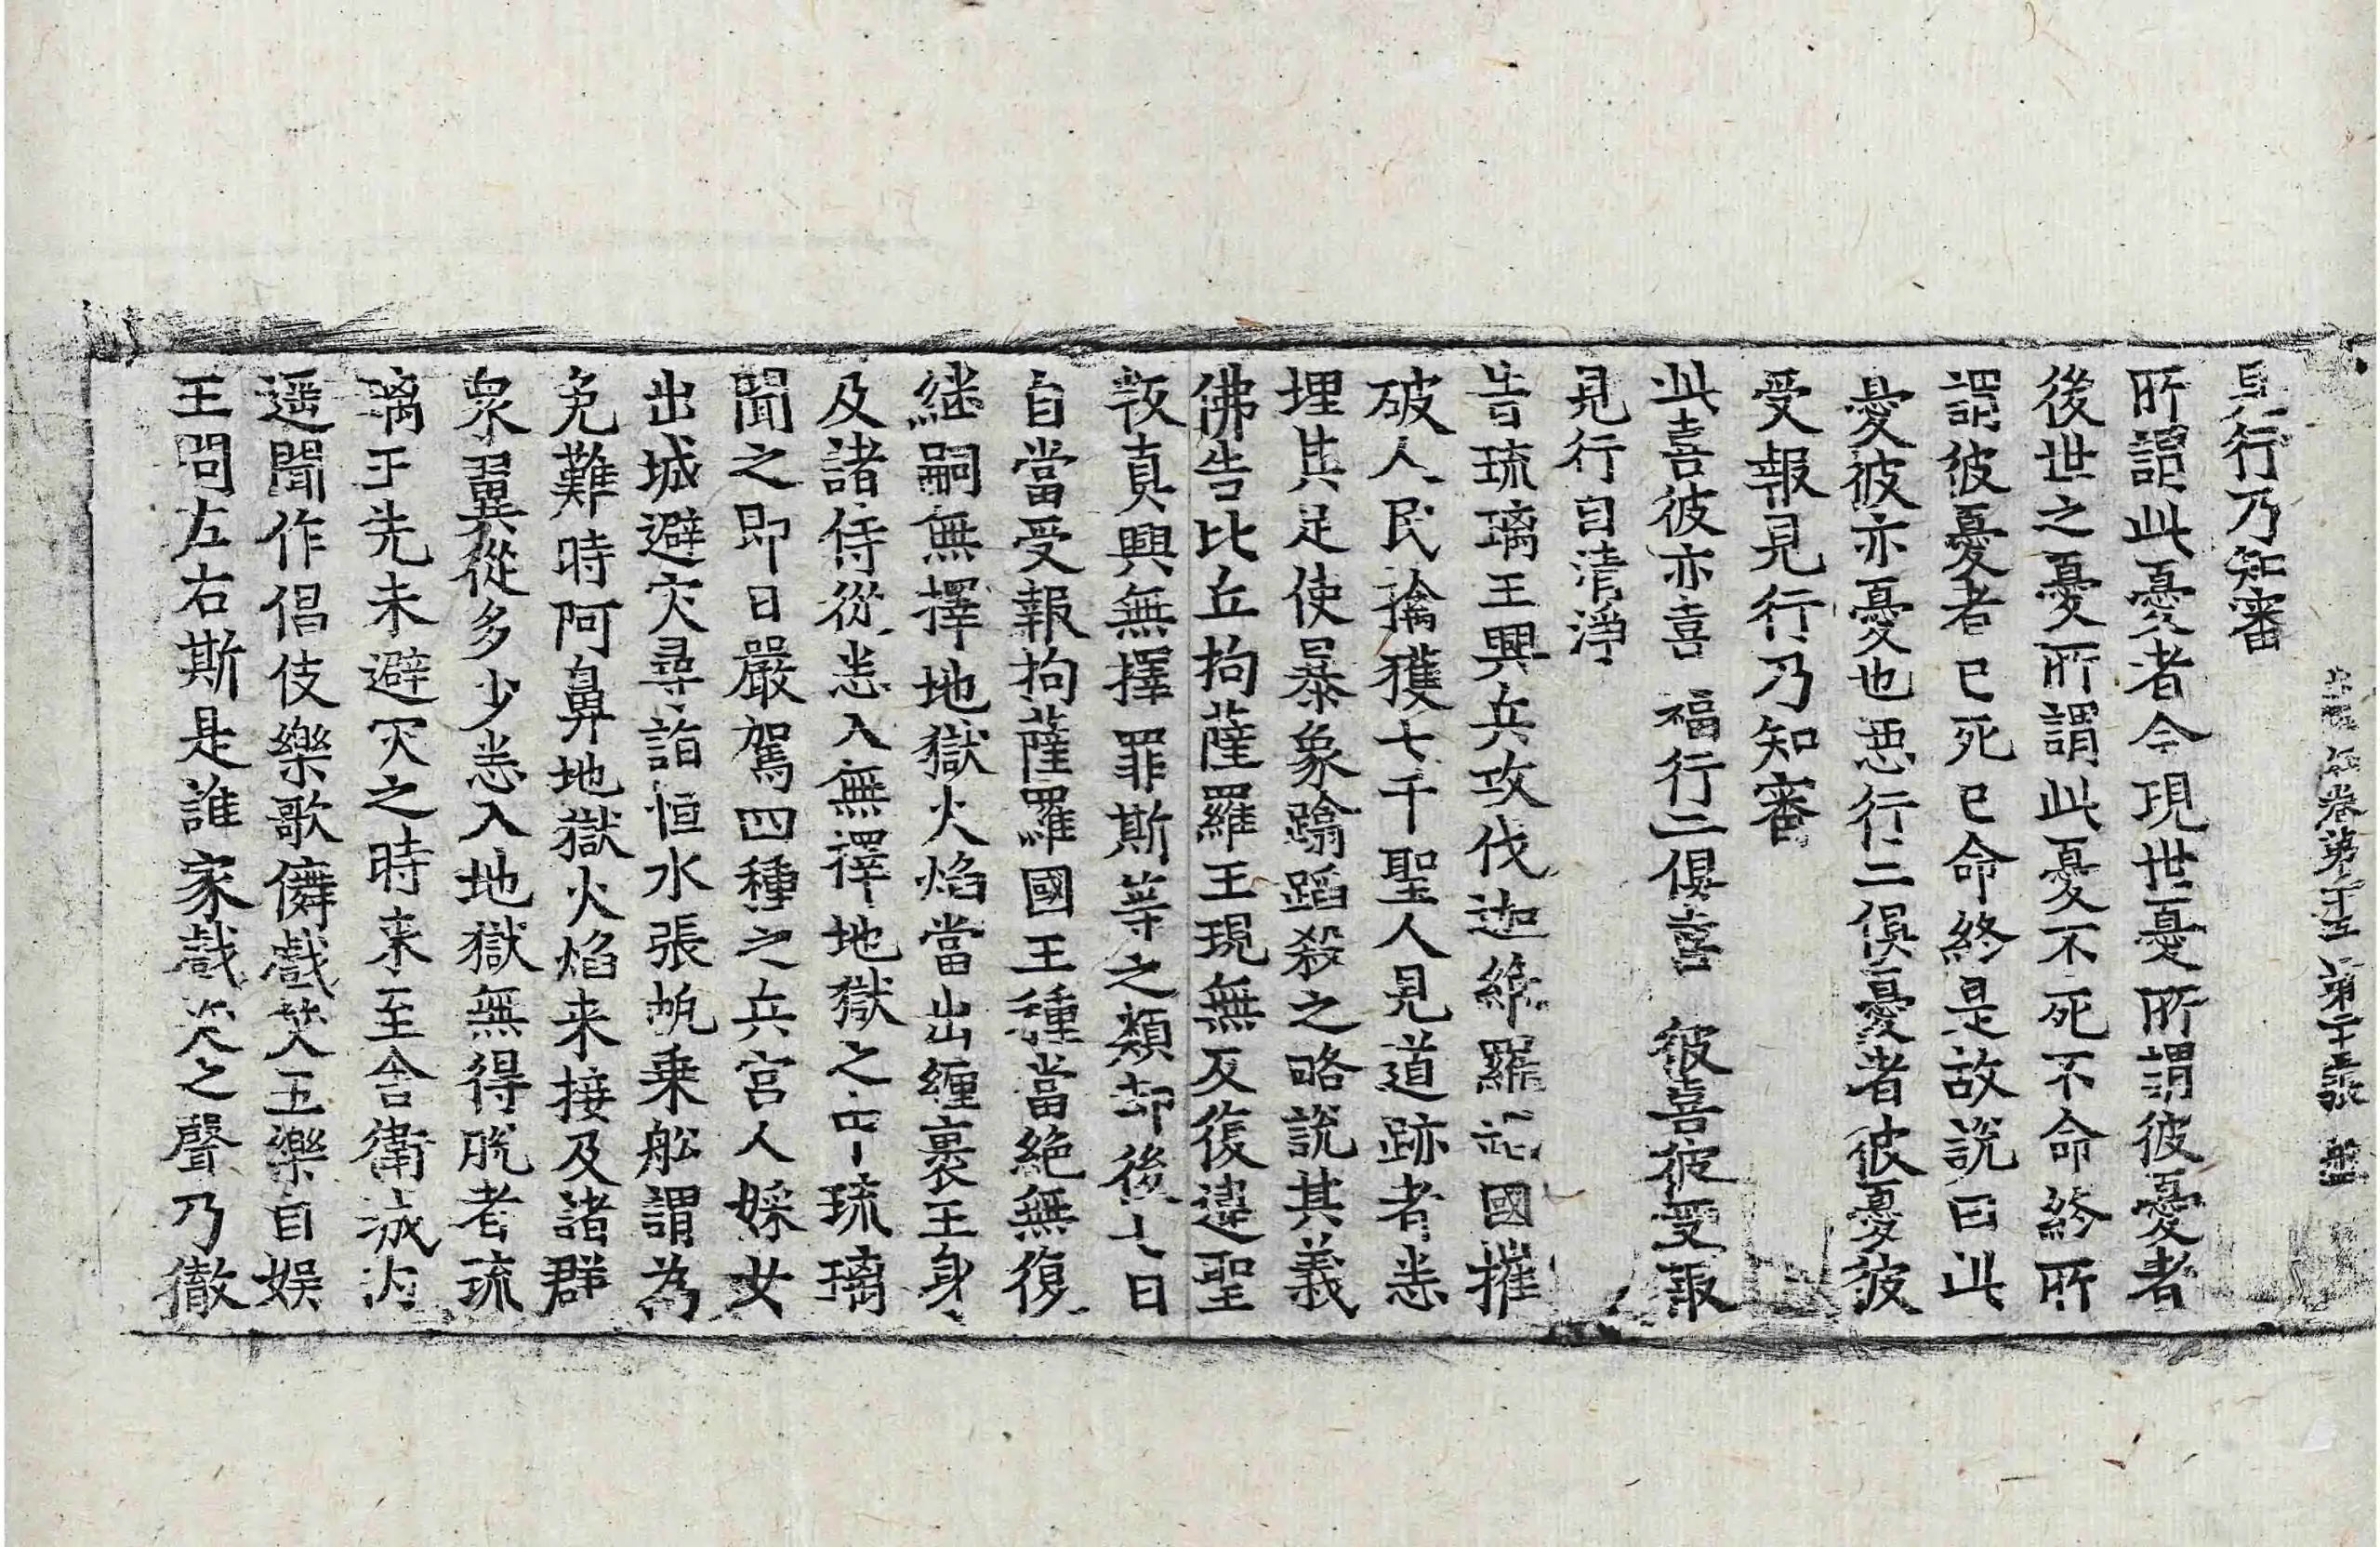 見行乃知審
所謂此憂者今現世憂所謂彼憂者
後世之憂所謂此憂不死不命終所
謂彼憂者已死已命終是故說曰此
憂彼亦憂也惡行二俱憂者彼憂彼
受報見行乃知審
此喜彼亦喜 福行二俱喜 彼喜彼受報
見行自清淨
昔琉璃王興兵攻伐迦維羅 國摧
破人民擒獲七千聖人見道跡者悉
埋其足使暴象蹹蹈殺之略說其義
佛告比丘拘薩羅王現無反復違聖
叛真興無擇罪斯等之類却後七日
自當受報拘薩羅國王種當絕無復
継嗣無擇地獄火焰當出纏裹王身
及諸侍從悉入無擇地獄之中琉璃
聞之即日嚴駕四種之兵宮人婇女
出城避灾尋詣恒水張帆乗舩謂為
免難時阿鼻地獄火焰来接及諸群
衆翼從多少悉入地獄無得脫者琉
璃王先未避灾之時来至舍衛城內
遥聞作倡伎樂歌儛戲笑五樂自娱
王問左右斯是誰家戲笑之聲乃徹
卷第十五 第十 張 盤